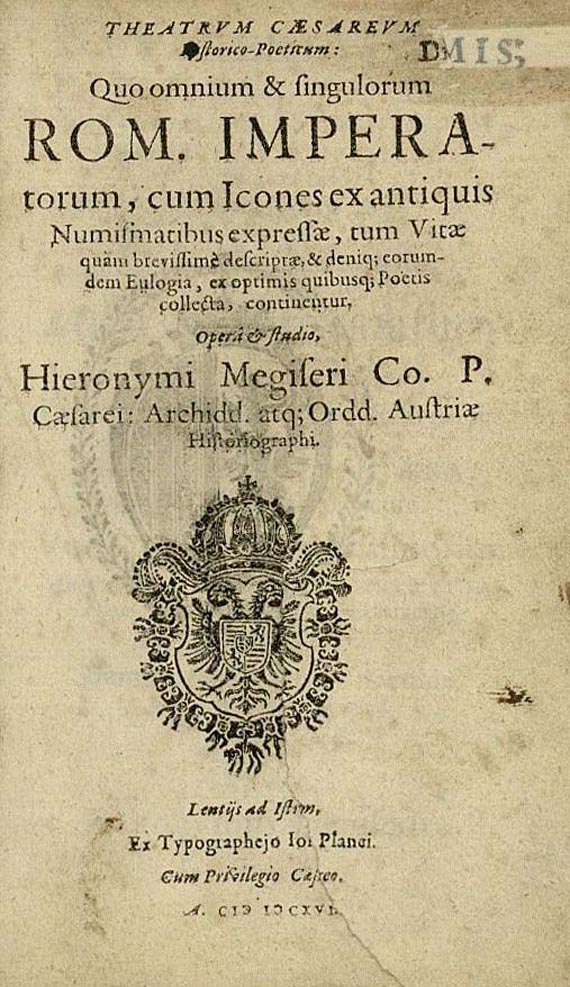 THEATRVM CÆSAREVM
Historico-Poeticum:
D MIS;
Quo omnium & ſingulorum
ROM. IMPERA-
torum, cum Icones ex antiquis
Numiſmatibus expreſſæ, tum Vitæ
quàm breviſſimè deſcriptæ, & deniq; eorum-
dem Eulogia, ex optimis quibusq; Poetis
collecta, continentur,
Operâ & ſtudio,
Hieronymi Megiſeri Co. P.
Cæſarei: Archidd. atq; Ordd. Auſtriæ
Hiſtoriographi.
Lentijs ad Iſtrum,
Ex Typographejo Ioi Planci.
Cum Privilegio Cæſreo.
A. CIↃ IↃCXVI.